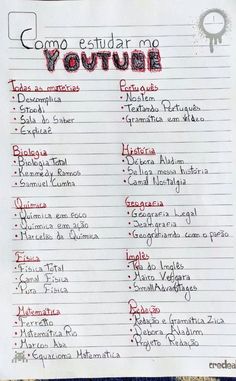 Como estudar no
YOUTUBE
Todas as matérias
• Descomplica
• Stoodi
• Sala do Saber
• Explicaê
Português
• Noslen
• Testando Português
• Gramática em Vídeo
Biologia
• Biologia Total
• Kennedy Ramos
• Samuel Cunha
História
• Débora Aladim
• Se liga nessa história
• Canal Nostalgia
Química
• Química em foco
• Química em ação
• Marcelão da Química
Geografia
• Geografia Legal
• Geografiando com o papão
Física
• Física Total
• Canal Física
• Pura Física
Inglês
• Tia do Inglês
• Mairo Vergara
• SmallAdvantages
Matemática
• Ferretto
• Matemática Rio
• Marcos Aba
• Equaciona Matemática
Redação
• Redação e Gramática Zica
• Débora Aladim
• Projeto Redação
credeal